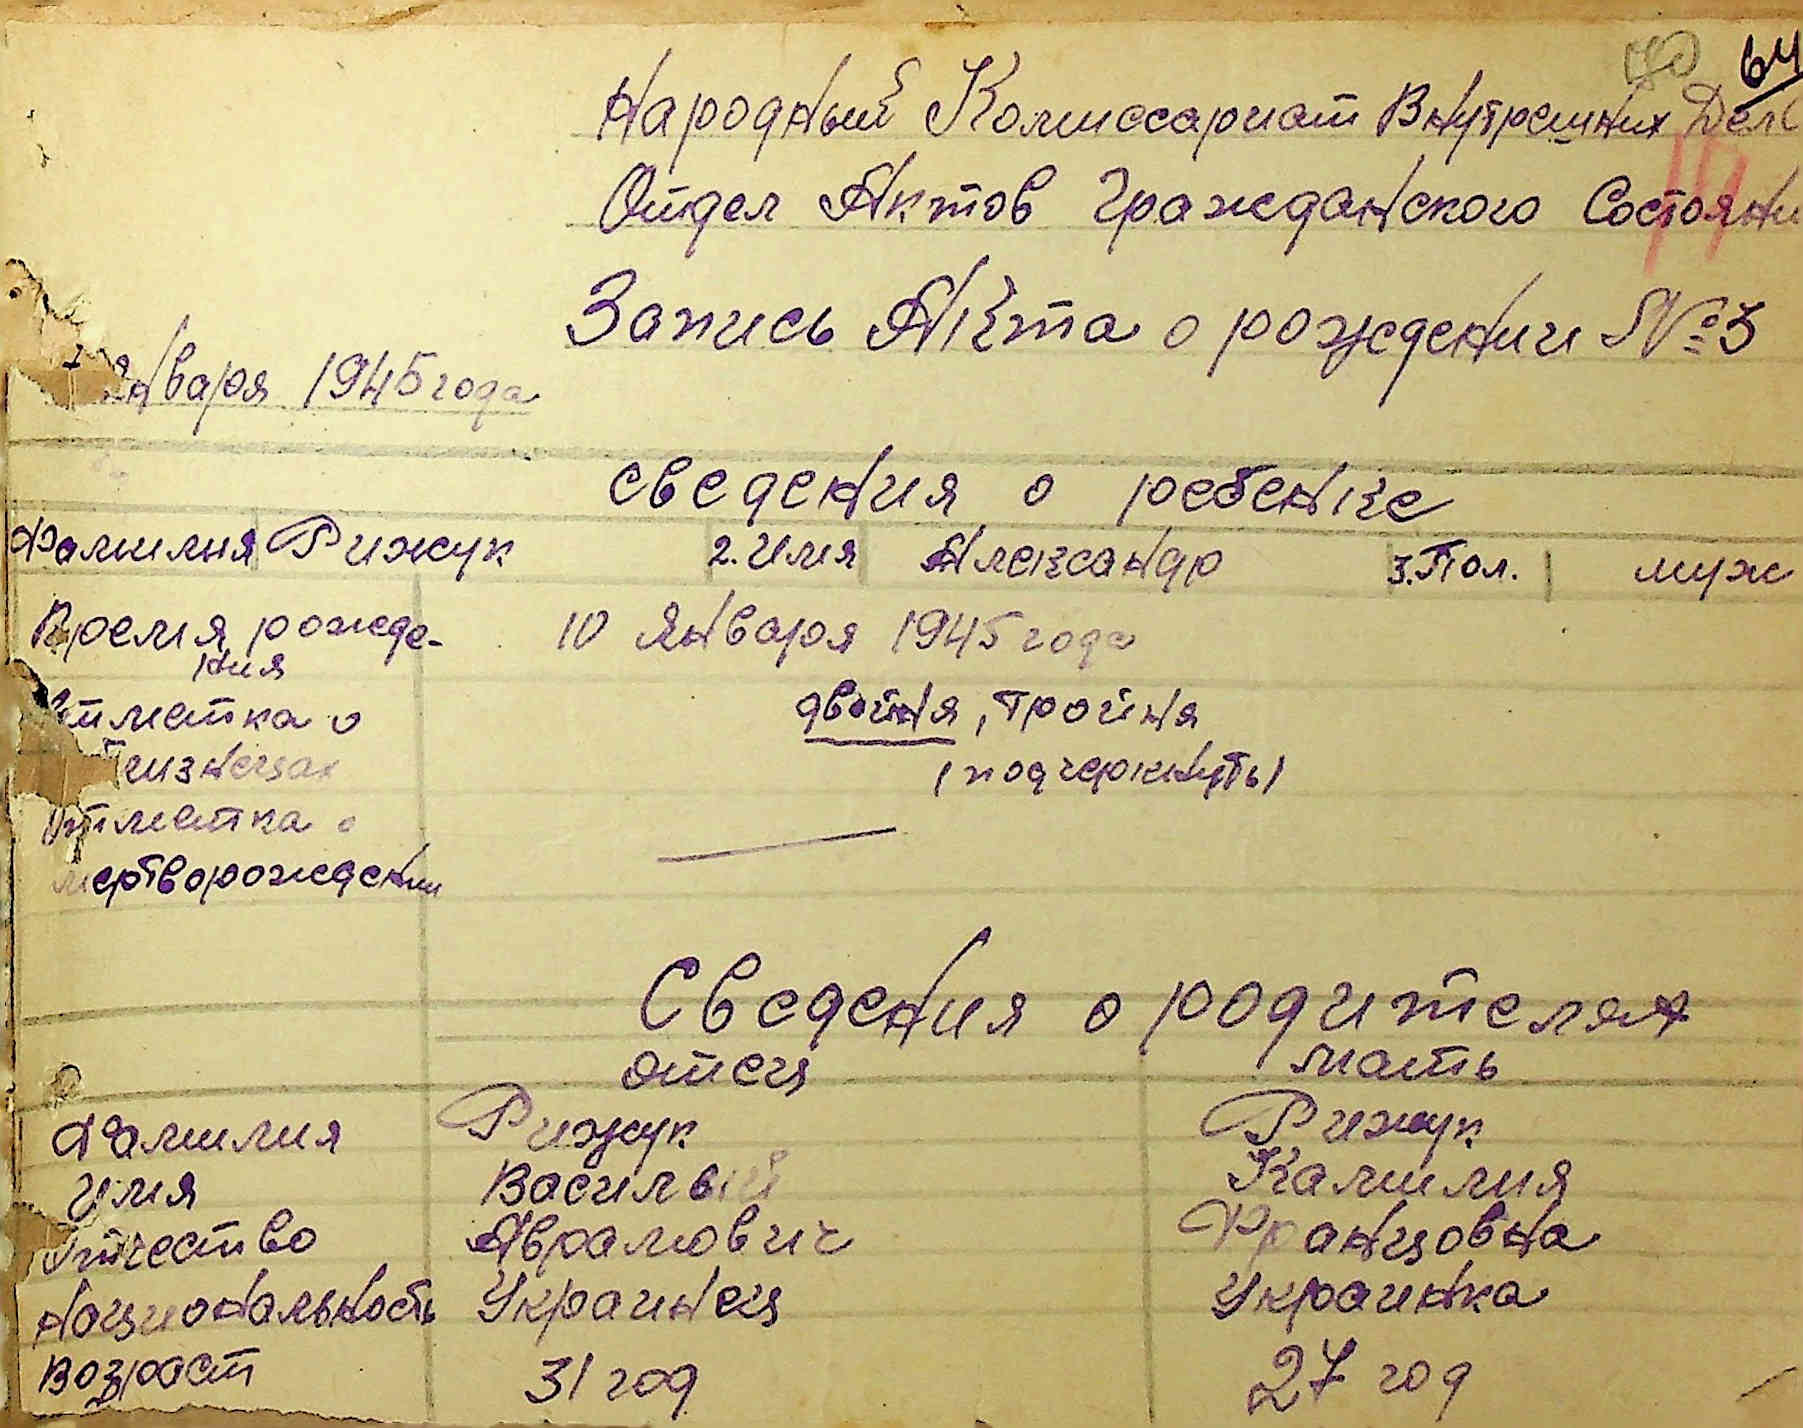 70 64
Народный Комиссариат Внутрешних Дел
19
Отдел Актов Гражданского Состояни
Запись Акта о рождении № 3
Января 1945 года
Сведения о ребенке
Фамилия Рижук 2. Имя Александр 3. Пол. муж
Время рожде- 10 Января 1945 года
ния
Отметка о двойня, тройня
близнецах (подчеркнуть)
Отметка о
мертворождении
Сведения о родителях
отец мать
Фамилия Рижук Рижук
Имя Василвий Камилия
Отчество Аврамович Францовна
Национальность Украинец Украинка
Возраст 31 год 27 год